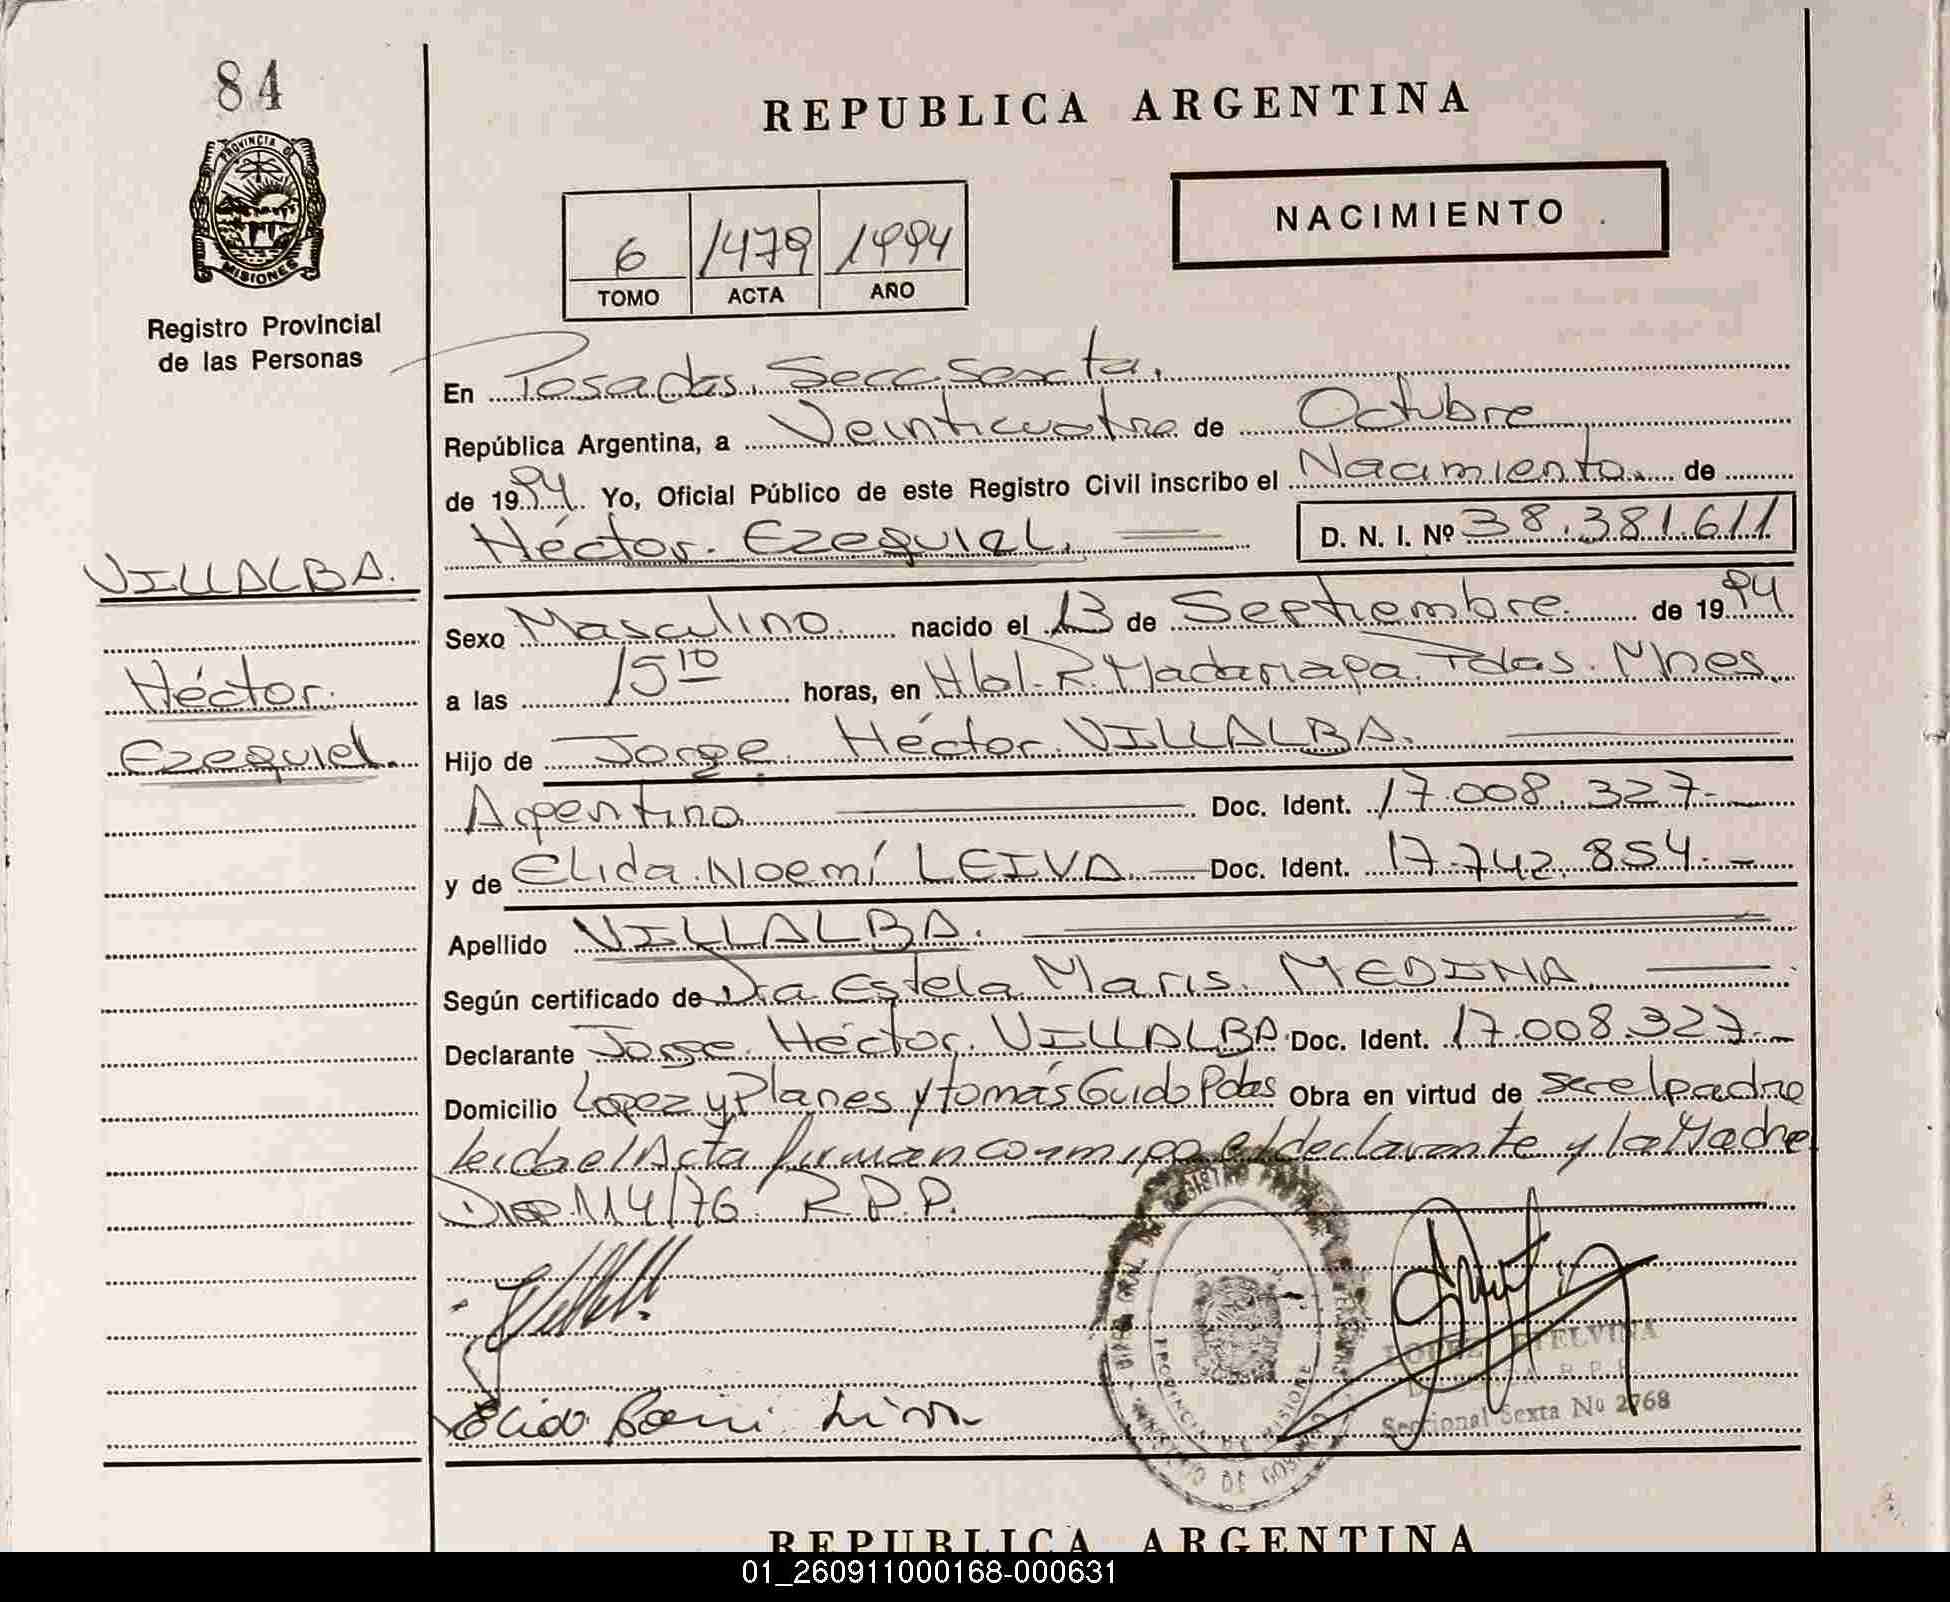 84
PROVINCIA DE
MISIONES
Registro Provincial
de las Personas
VILLALBA.
Héctor.
Ezequiel.
REPUBLICA ARGENTINA
NACIMIENTO
6 1479 1994
TOMO ACTA AÑO
En Posadas. Secc. Sexta.
República Argentina, a Veinticuatro de Octubre
de 1994. Yo, Oficial Público de este Registro Civil inscribo el Nacimiento. de
Héctor. Ezequiel. D. N. I. Nº 38.381.611
Sexo Masculino. nacido el 13 de Septiembre. de 1994
a las 15 10 horas, en Htal. R. Madariaga. Pdas. Mnes.
Hijo de Jorge. Héctor. VILLALBA.
Argentino Doc. Ident. 17.008.327.-
y de Elida. Noemí LEIVA. Doc. Ident. 17.742.854.-
Apellido VILLALBA.
Según certificado de Dra Estela Maris. MEDINA
Declarante Jorge. Héctor. VILLALBA. Doc. Ident. 17.008.327.-
Domicilio Lopez y Planes y tomás Guido Pdas Obra en virtud de ser el padre
leida el Acta firman conmigo el declarante y la Madre
Disp. 114/76. R.P.P.
PROVINCIA DE MISIONES
MINISTERIO DE GOBIERNO
Seccional Sexta Nº 2768
REPUBLICA ARGENTINA
01_260911000168-000631